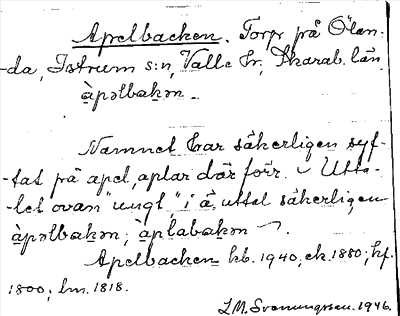 Apelbacken. Torp på Ölan-
da, Istrum s:n, Valle hr, Skarab. län.
àpəlbakən
Namnet har säkerligen syf-
tat på apel, aplar där förr. – Utta-
let ovan "ungt" i ä. uttal säkerligen
àpəlbakən; àplabakən
Apelbacken hb. 1940; ek. 1880; hf.
1800; lm. 1818.
L.M. Svenungsson. 1946.